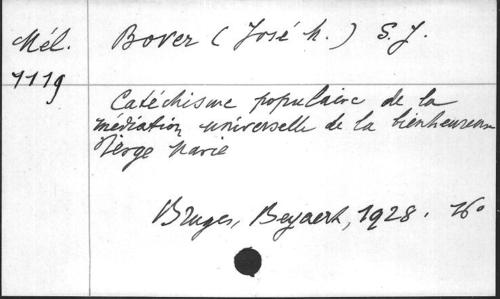 Mél. Bover (José M.) S.J.
1119
Catéchisme populaire de la
médiation universelle de la bienheureuse
Vierge Marie
Bruges, Beyaert, 1928. 16°